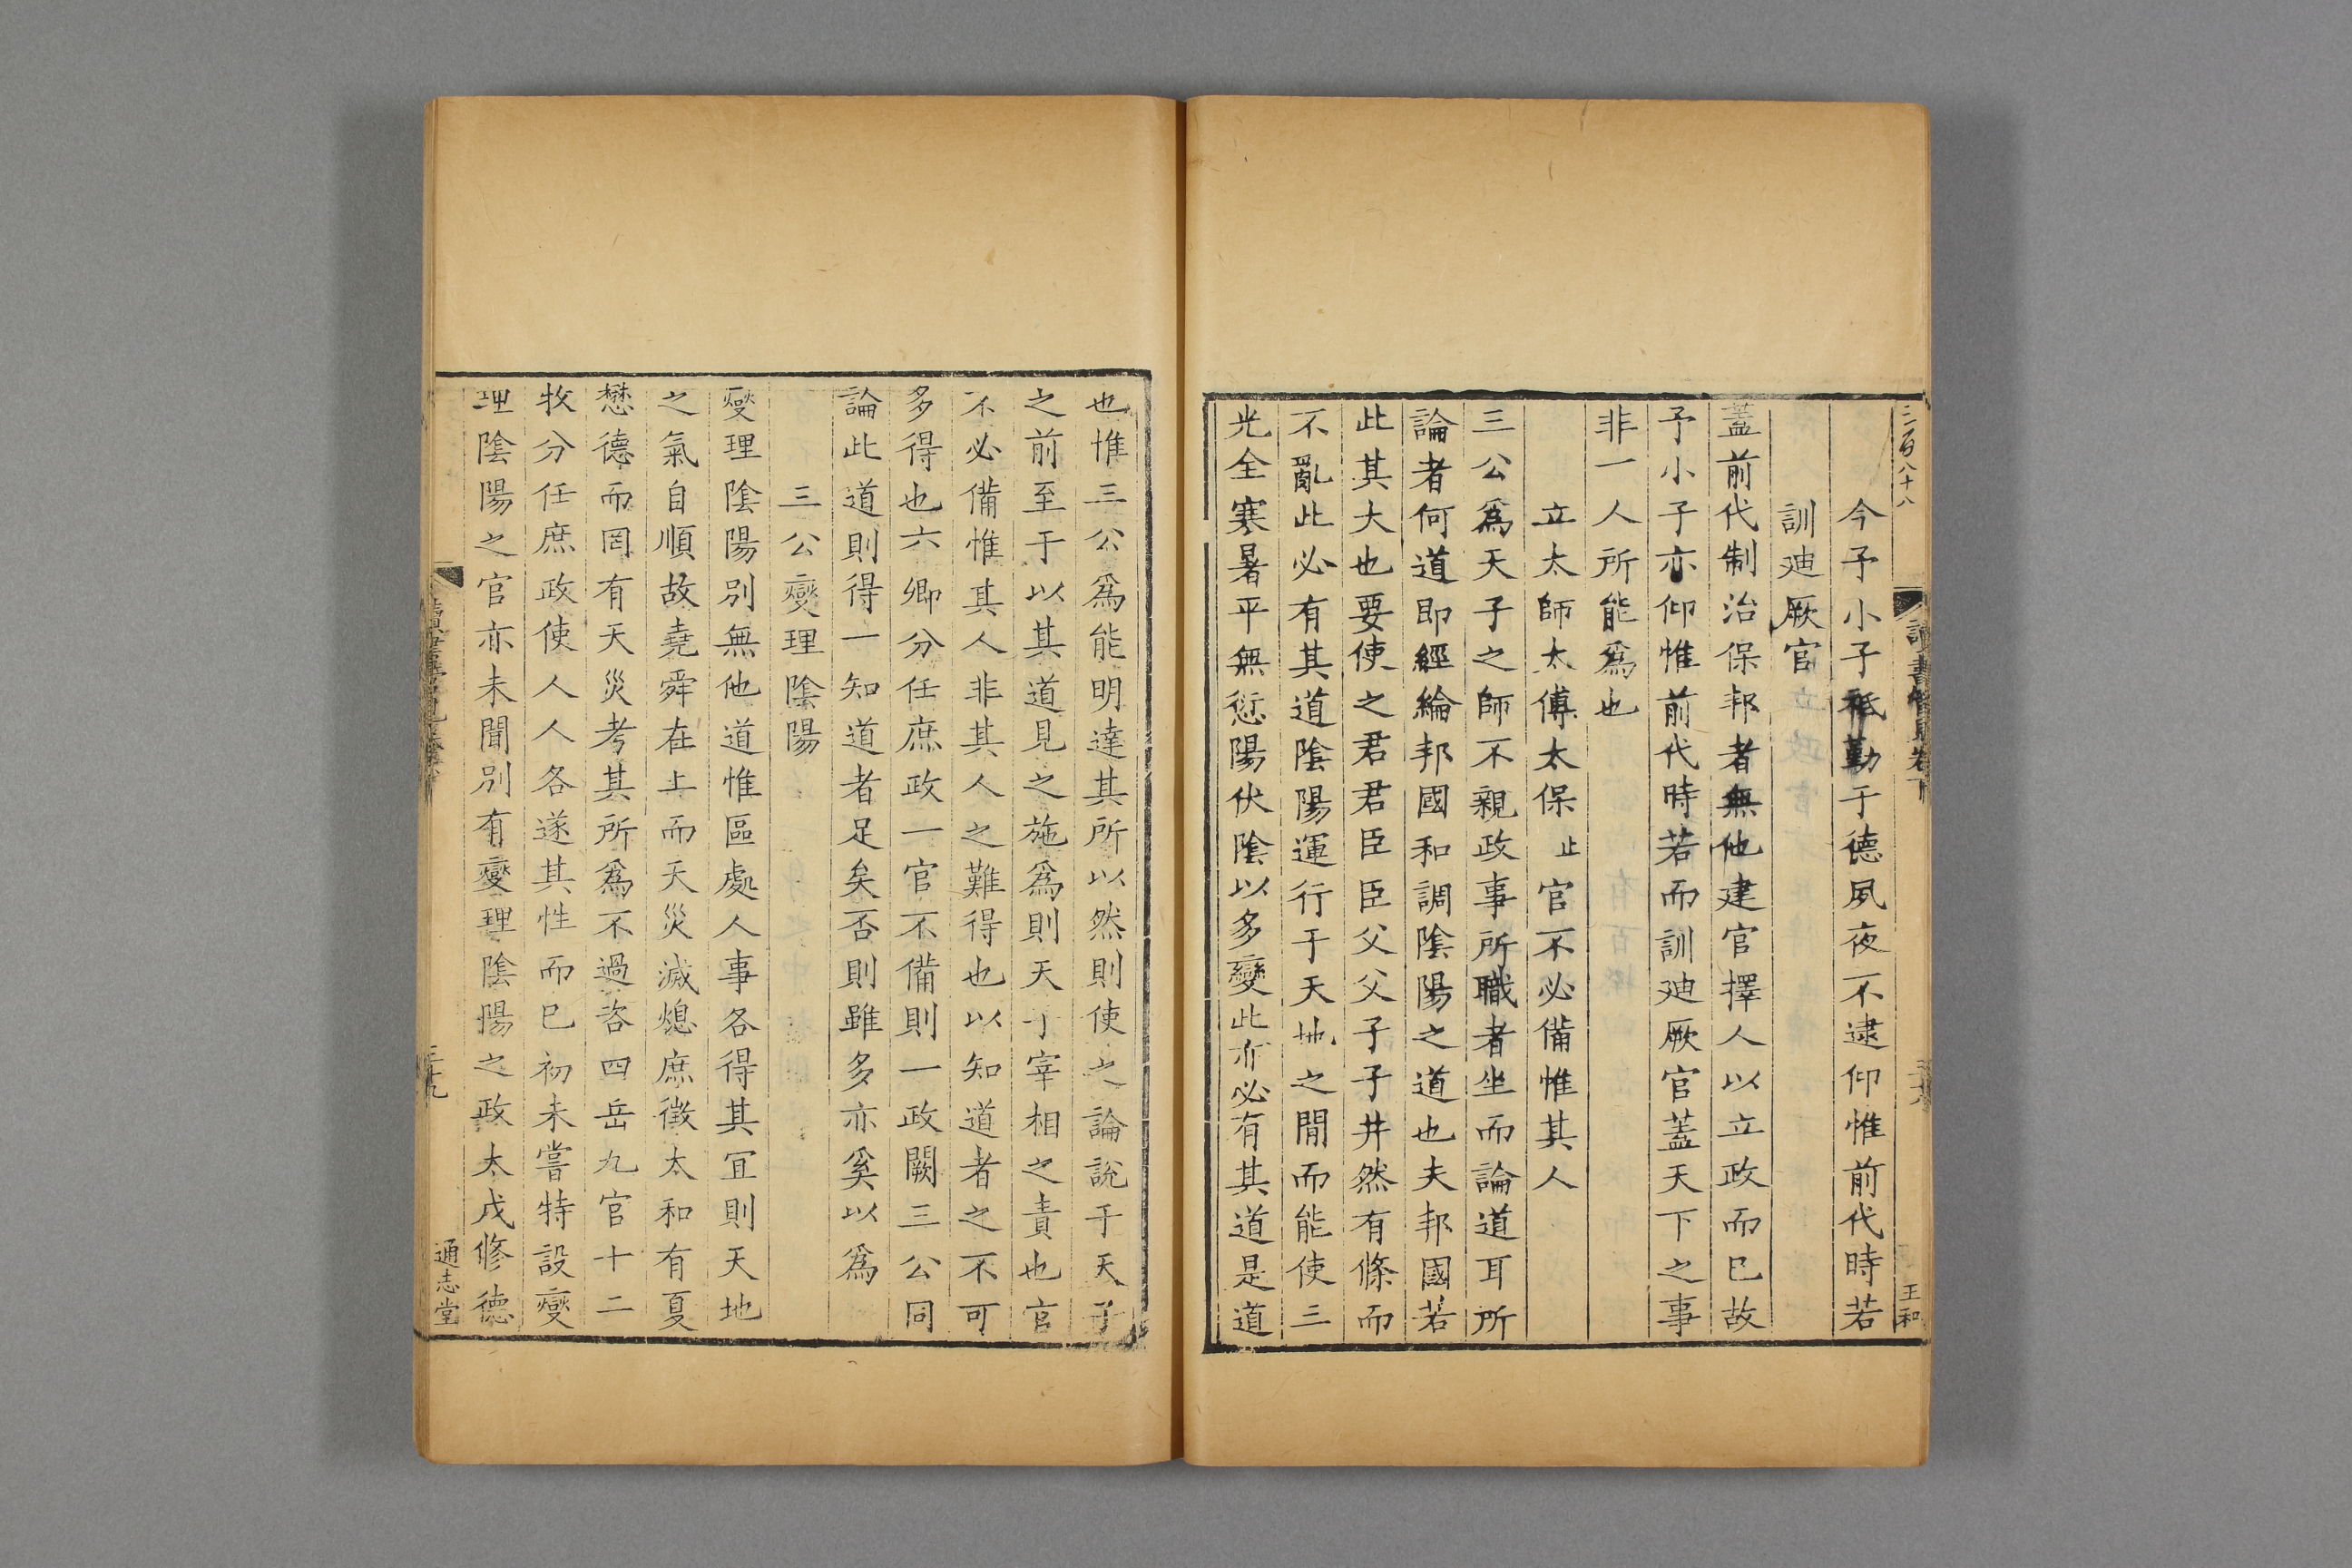 三百八十八
讀書管見卷下
王和
今予小子祗勤于德夙夜不逮仰惟前代時若
訓廸厥官
蓋前代制治保邦者無他建官擇人以立政而已故
予小子亦仰惟前代時若而訓廸厥官蓋天下之事
非一人所能爲也
立太師太傅太保止官不必備惟其人
三公爲天子之師不親政事所職者坐而論道耳所
論者何道即經綸邦國和調陰陽之道也夫邦國若
此其大也要使之君君臣臣父父子子井然有條而
不亂此必有其道陰陽運行于天地之間而能使三
光全寒暑平無愆陽伏陰以多變此亦必有其道是道
也惟三公爲能明達其所以然則使之論說于天子
之前至于以其道見之施爲則天子宰相之責也官
不必備惟其人非其人之難得也以知道者之不可
多得也六卿分任庶政一官不備則一政闕三公同
論此道則得一知道者足矣否則雖多亦奚以爲
三公燮理陰陽
燮理陰陽別無他道惟區處人事各得其宜則天地
之氣自順故堯舜在上而天災滅熄庶徵太和有夏
懋德而罔有天災考其所爲不過咨四岳九官十二
牧分任庶政使人人各遂其性而已初未嘗特設燮
理陰陽之官亦未聞別有燮理陰陽之政太戊修德
三十九
通志堂